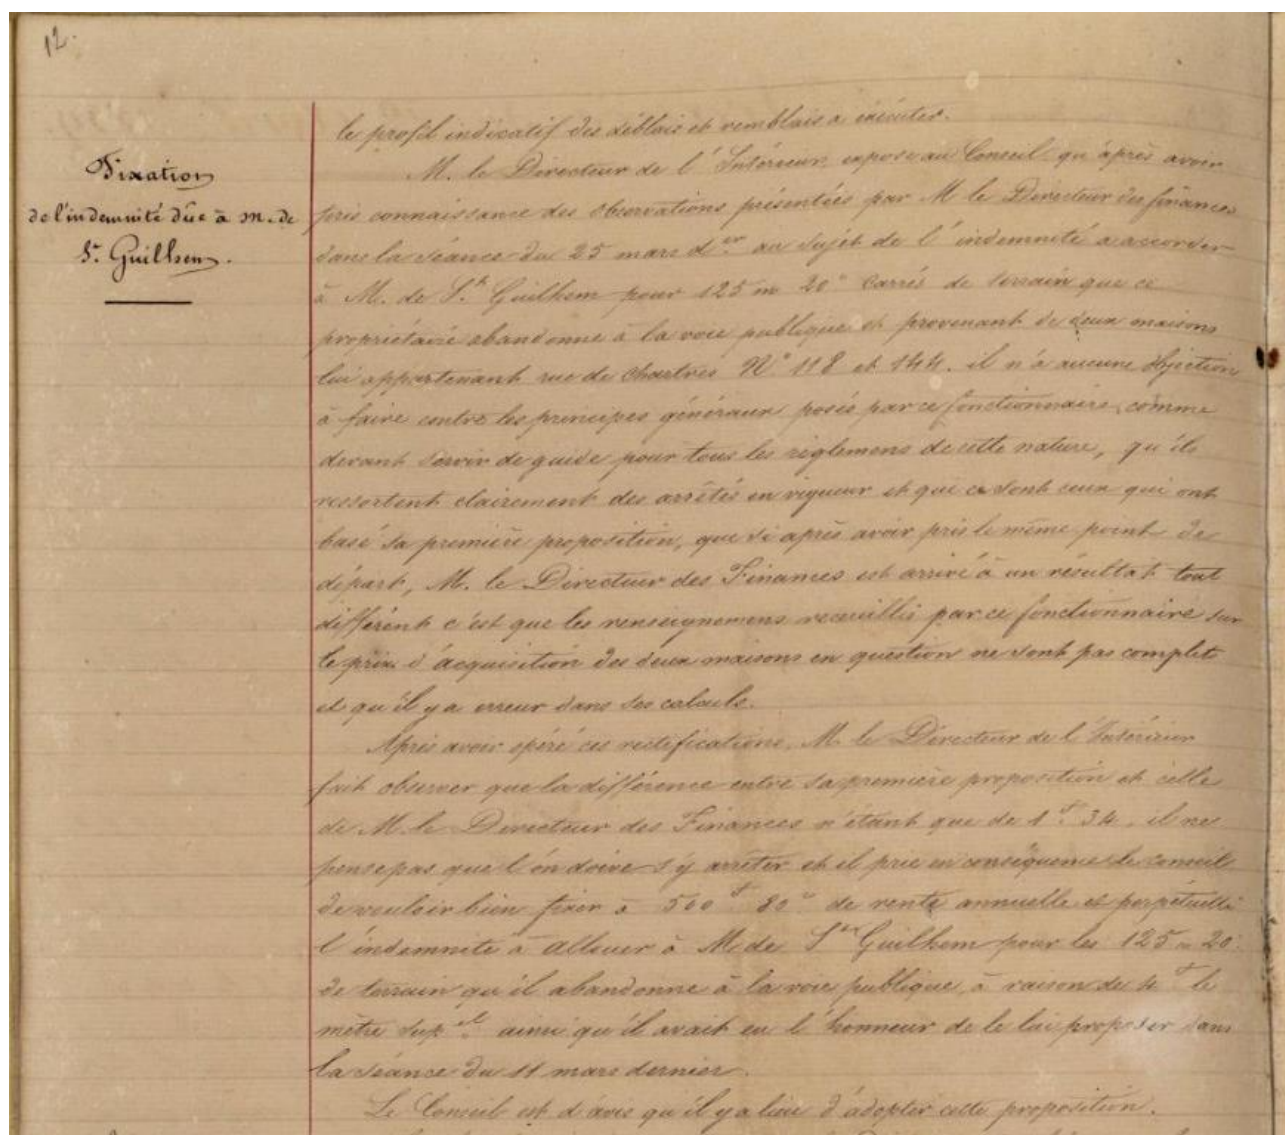 12.
Fixation
de l'indemnité dûe à M. de
St. Guilhem.
le profil indicatif des déblais et remblais a exécuter.
M. le Directeur de l'Intérieur expose au Conseil qu'après avoir
pris connaissance des observations présentées par M le Directeur des finances
dans la séance du 25 mars der au sujet de l'indemnité a accorder
à M. de St. Guilhem pour 125 m 20c carrés de terrain que ce
propriétaire abandonne à la voie publique et provenant de deux maisons
lui appartenant rue de Chartres No 118 et 144. il n'a aucune objection
à faire contre les principes généraux posés par ce fonctionnaire, comme
devant servir de guide pour tous les règlemens de cette nature, qu'ils
ressortent clairement des arrêtés en vigueur et que ce sont ceux qui ont
basé sa première proposition, que si après avoir pris le même point de
départ, M. le Directeur des Finances est arrivé à un résultat tout
différent c'est que les renseignemens recueillis par ce fonctionnaire sur
le prix d'acquisition des deux maisons en question ne sont pas complet
et qu'il y a erreur dans ses calculs.
Après avoir opéré ces rectifications, M. le Directeur de l'Intérieur
fait observer que la différence entre sa première proposition et celle
de M. le Directeur des Finances n'étant que de 1f. 34, il ne
pense pas que l'on doive s'y arrêter et il prie en conséquence le conseil
de vouloir bien fixer à 500f 80c de rente annuelle et perpétuelle
l'indemnité à allouer à M. de St Guilhem pour les 125m 20
de terrain qu'il abandonne à la voie publique, à raison de 4f le
mètre supel ainsi qu'il avait eu l'honneur de le lui proposer dans
la séance du 11 mars dernier.
Le Conseil est d'avis qu'il y a lieu d'adopter cette proposition.